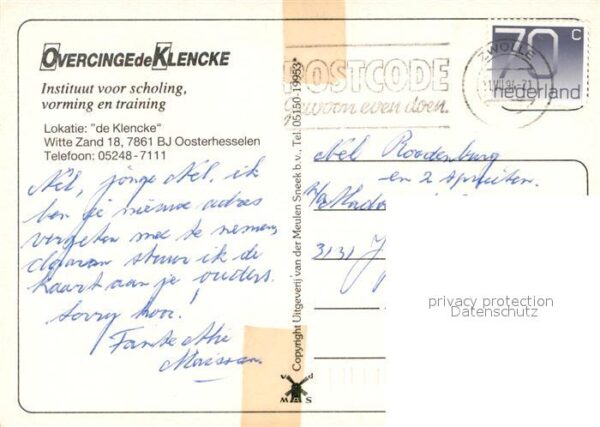 OVERCINGE de KLENCKE
Instituut voor scholing,
vorming en training
Lokatie: "de Klencke"
Witte Zand 18, 7861 BJ Oosterhesselen
Telefoon: 05248-7111
Nel, jonge Nel, ik
ben je nieuwe adres
vergeten mee te nemen,
daarom stuur ik de
kaart aan je ouders.
Sorry hoor!
Tante
Copyright Uitgeverij van der Meulen Sneek b.v., Tel. 05150-19953*
v d
M A S
POSTCODE
gewoon even doen.
ZWOLLE
70 c
nederland
Nel Roodenburg
en 2 spruiten.
3131
privacy protection
Datenschutz